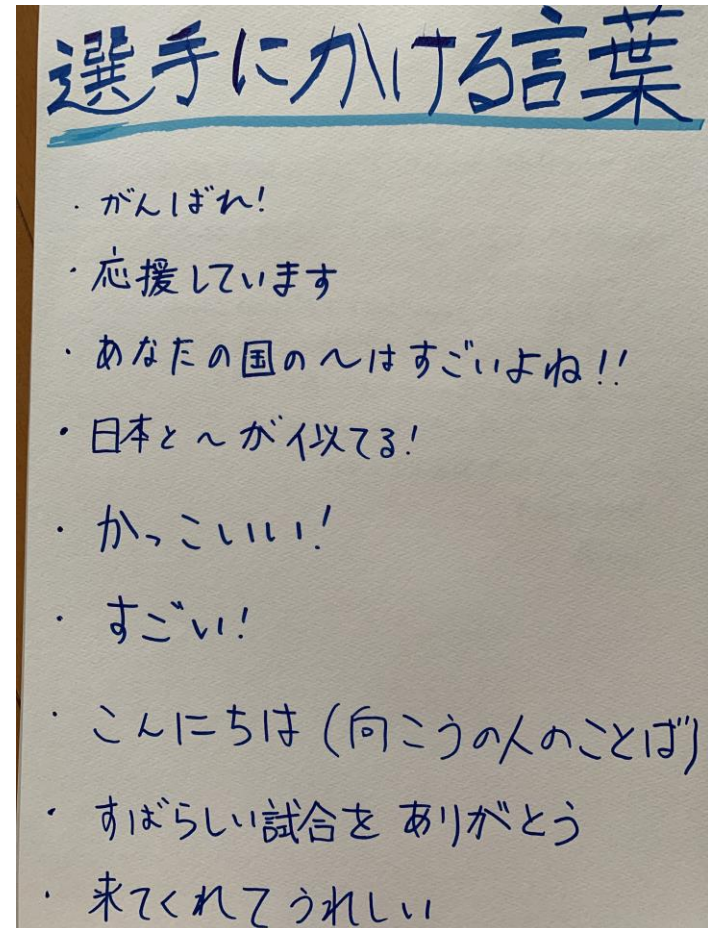 選手にかける言葉
・がんばれ!
・応援しています
・あなたの国の〜はすごいよね!!
・日本と〜が似てる!
・かっこいい!
・すごい!
・こんにちは(向こうの人のことば)
・すばらしい試合を ありがとう
・来てくれてうれしい